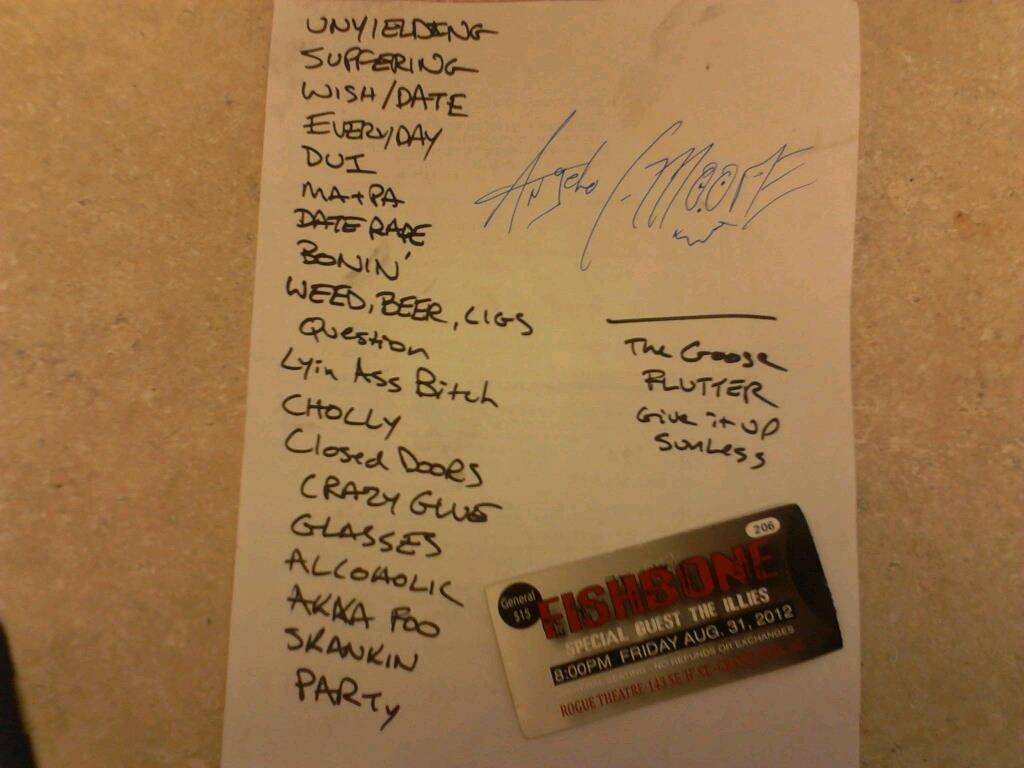 UNYIELDING
SUFFERING
WISH/DATE
EVERYDAY
DUI
MA+PA
DATE RAPE
BONIN'
WEED, BEER, CIGS
Question
Lyin Ass Bitch
CHOLLY
Closed DOORS
CRAZY GLUE
GLASSES
ALCOHOLIC
AKKA FOO
SKANKIN
PARTY
Angelo C. MOORE
The Goose
FLUTTER
Give it UP
SUNLESS
206
General
$15
FISHBONE
SPECIAL GUEST THE ILLIES
8:00PM FRIDAY AUG. 31, 2012
SEATING - NO REFUNDS OR EXCHANGES
ROGUE THEATRE-143 SE H ST.